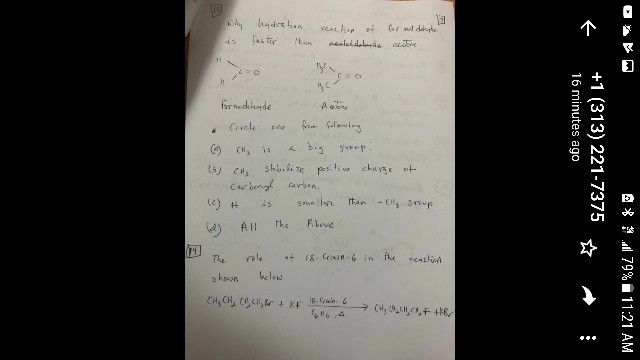 13
Why hydration reaction of formaldehyde
is faster than acetaldehyde acetone
H
C=O
H
H3C
C=O
H3C
Formaldehyde Acetone
Circle one from following
(a) CH3 is a big group.
(b) CH3 stabilize positive charge of
Carbonyl carbon.
(c) H is smaller than -CH3 group
(d) All the Above
14
The role of 18-Crown-6 in the reaction
shown below
CH3CH2CH2CH2Br + KF 18-Crown-6 → CH3CH2CH2CH2F + KBr
C6H6, Δ
+1 (313) 221-7375
16 minutes ago
79% 11:21 AM